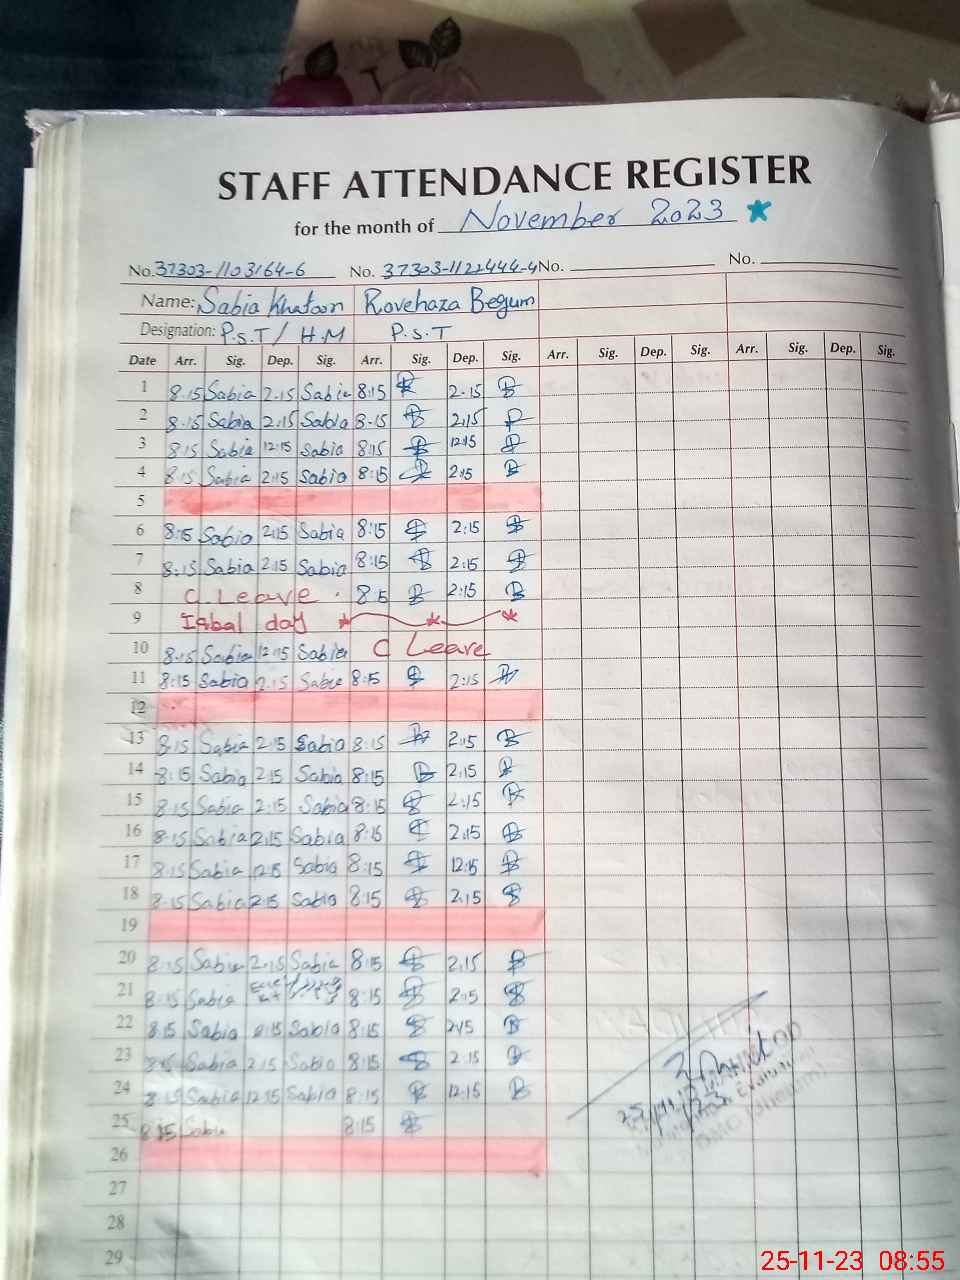 STAFF ATTENDANCE REGISTER
for the month of November 2023
No. 37303-1103164-6 No. 37303-1122444-4 No. No.
Name: Sabia Khatoon Rovehaza Begum
Designation: P.S.T / H.M P.S.T
Date Arr. Sig. Dep. Sig. Arr. Sig. Dep. Sig. Arr. Sig. Dep. Sig. Arr. Sig. Dep. Sig.
1 8.15 Sabia 2.15 Sabia 8:15 2.15
2 8.15 Sabia 2.15 Sabia 8.15 2.15
3 8.15 Sabia 12.15 Sabia 8.15 12.15
4 8.15 Sabia 2.15 Sabia 8:15 2.15
5
6 8:15 Sabia 2.15 Sabia 8:15 2:15
7 8.15 Sabia 2.15 Sabia 8:15 2.15
8 C. Leave 2:15
9 Iqbal day
10 8.15 Sabia 12.15 Sabia C Leave
11 8:15 Sabia 2.15 Sabia 8:15 2:15
12
13 8.15 Sabia 2.15 Sabia 8:15 2.15
14 8:15 Sabia 2.15 Sabia 8:15 2.15
15 8.15 Sabia 2:15 Sabia 8:15 2:15
16 8.15 Sabia 2.15 Sabia 8:15 2.15
17 8.15 Sabia 12.15 Sabia 8:15 12:15
18 8.15 Sabia 2.15 Sabia 8:15 2.15
19
20 8.15 Sabia 2.15 Sabia 8:15 2.15
21 8.15 Sabia 8:15 2.15
22 8.15 Sabia 2.15 Sabia 8:15 2.15
23 8.15 Sabia 2.15 Sabia 8:15 2.15
24 8.15 Sabia 12.15 Sabia 8:15 12:15
25 8.15 Sabia 8:15
26
27
28
29
25-11-23 08:55